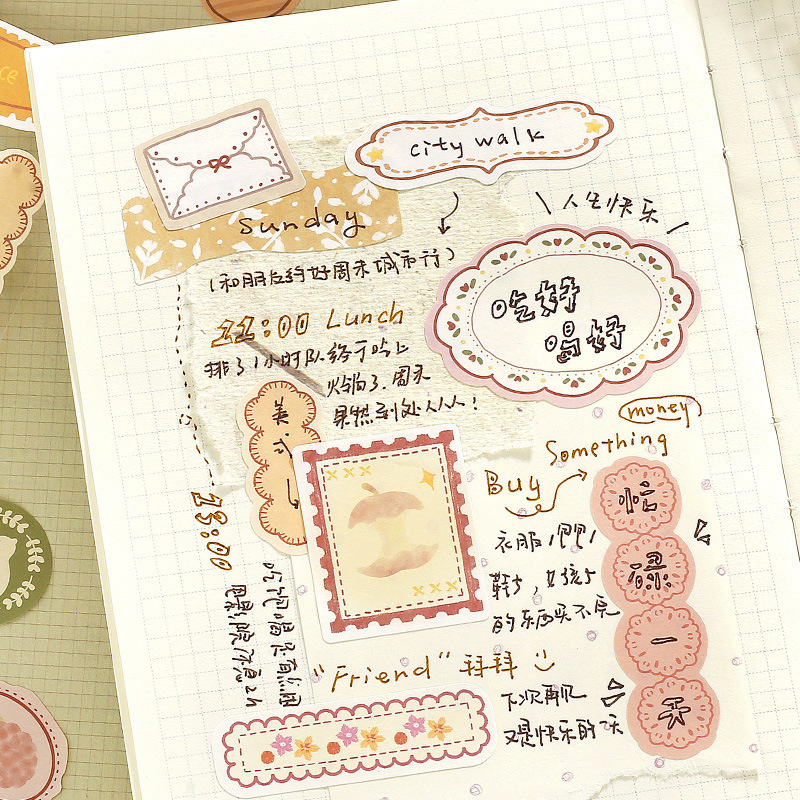 city walk
sunday
人生快乐
(和朋友约好周末城市行)
吃好
喝好
11:00 Lunch
排了1小时队终于吃上
火锅了.周末
果然到处人人人!
美式
money
Something
Buy
忙
碌
一
天
衣服
鞋子,女孩子
的东西买不完
18:00
"Friend" 拜拜
下次再见
又是快乐的一天